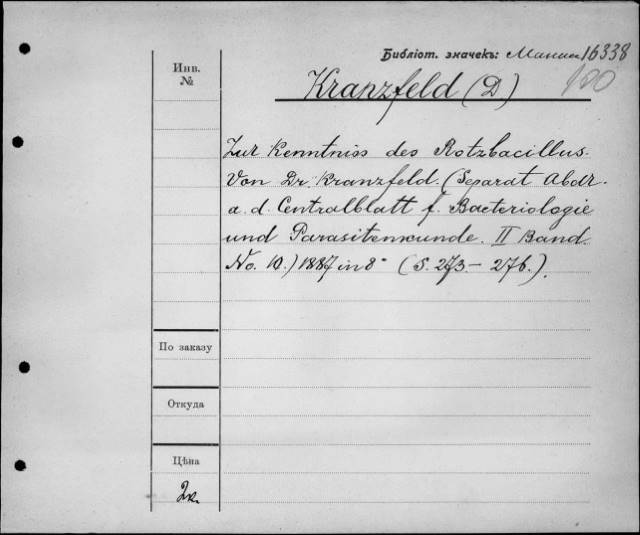 Библіот. значекъ: 16338
120
Инв.
№
Kranzfeld (D)
Zur Kenntniss des Rotzbacillus.
Von Dr. Kranzfeld. (Separat Abdr.
a. d. Centralblatt f. Bacteriologie
und Parasitenkunde. II Band.
No. 10.) 1887 in 8° (S. 273 – 276.)
По заказу
Откуда
Цѣна
2к.